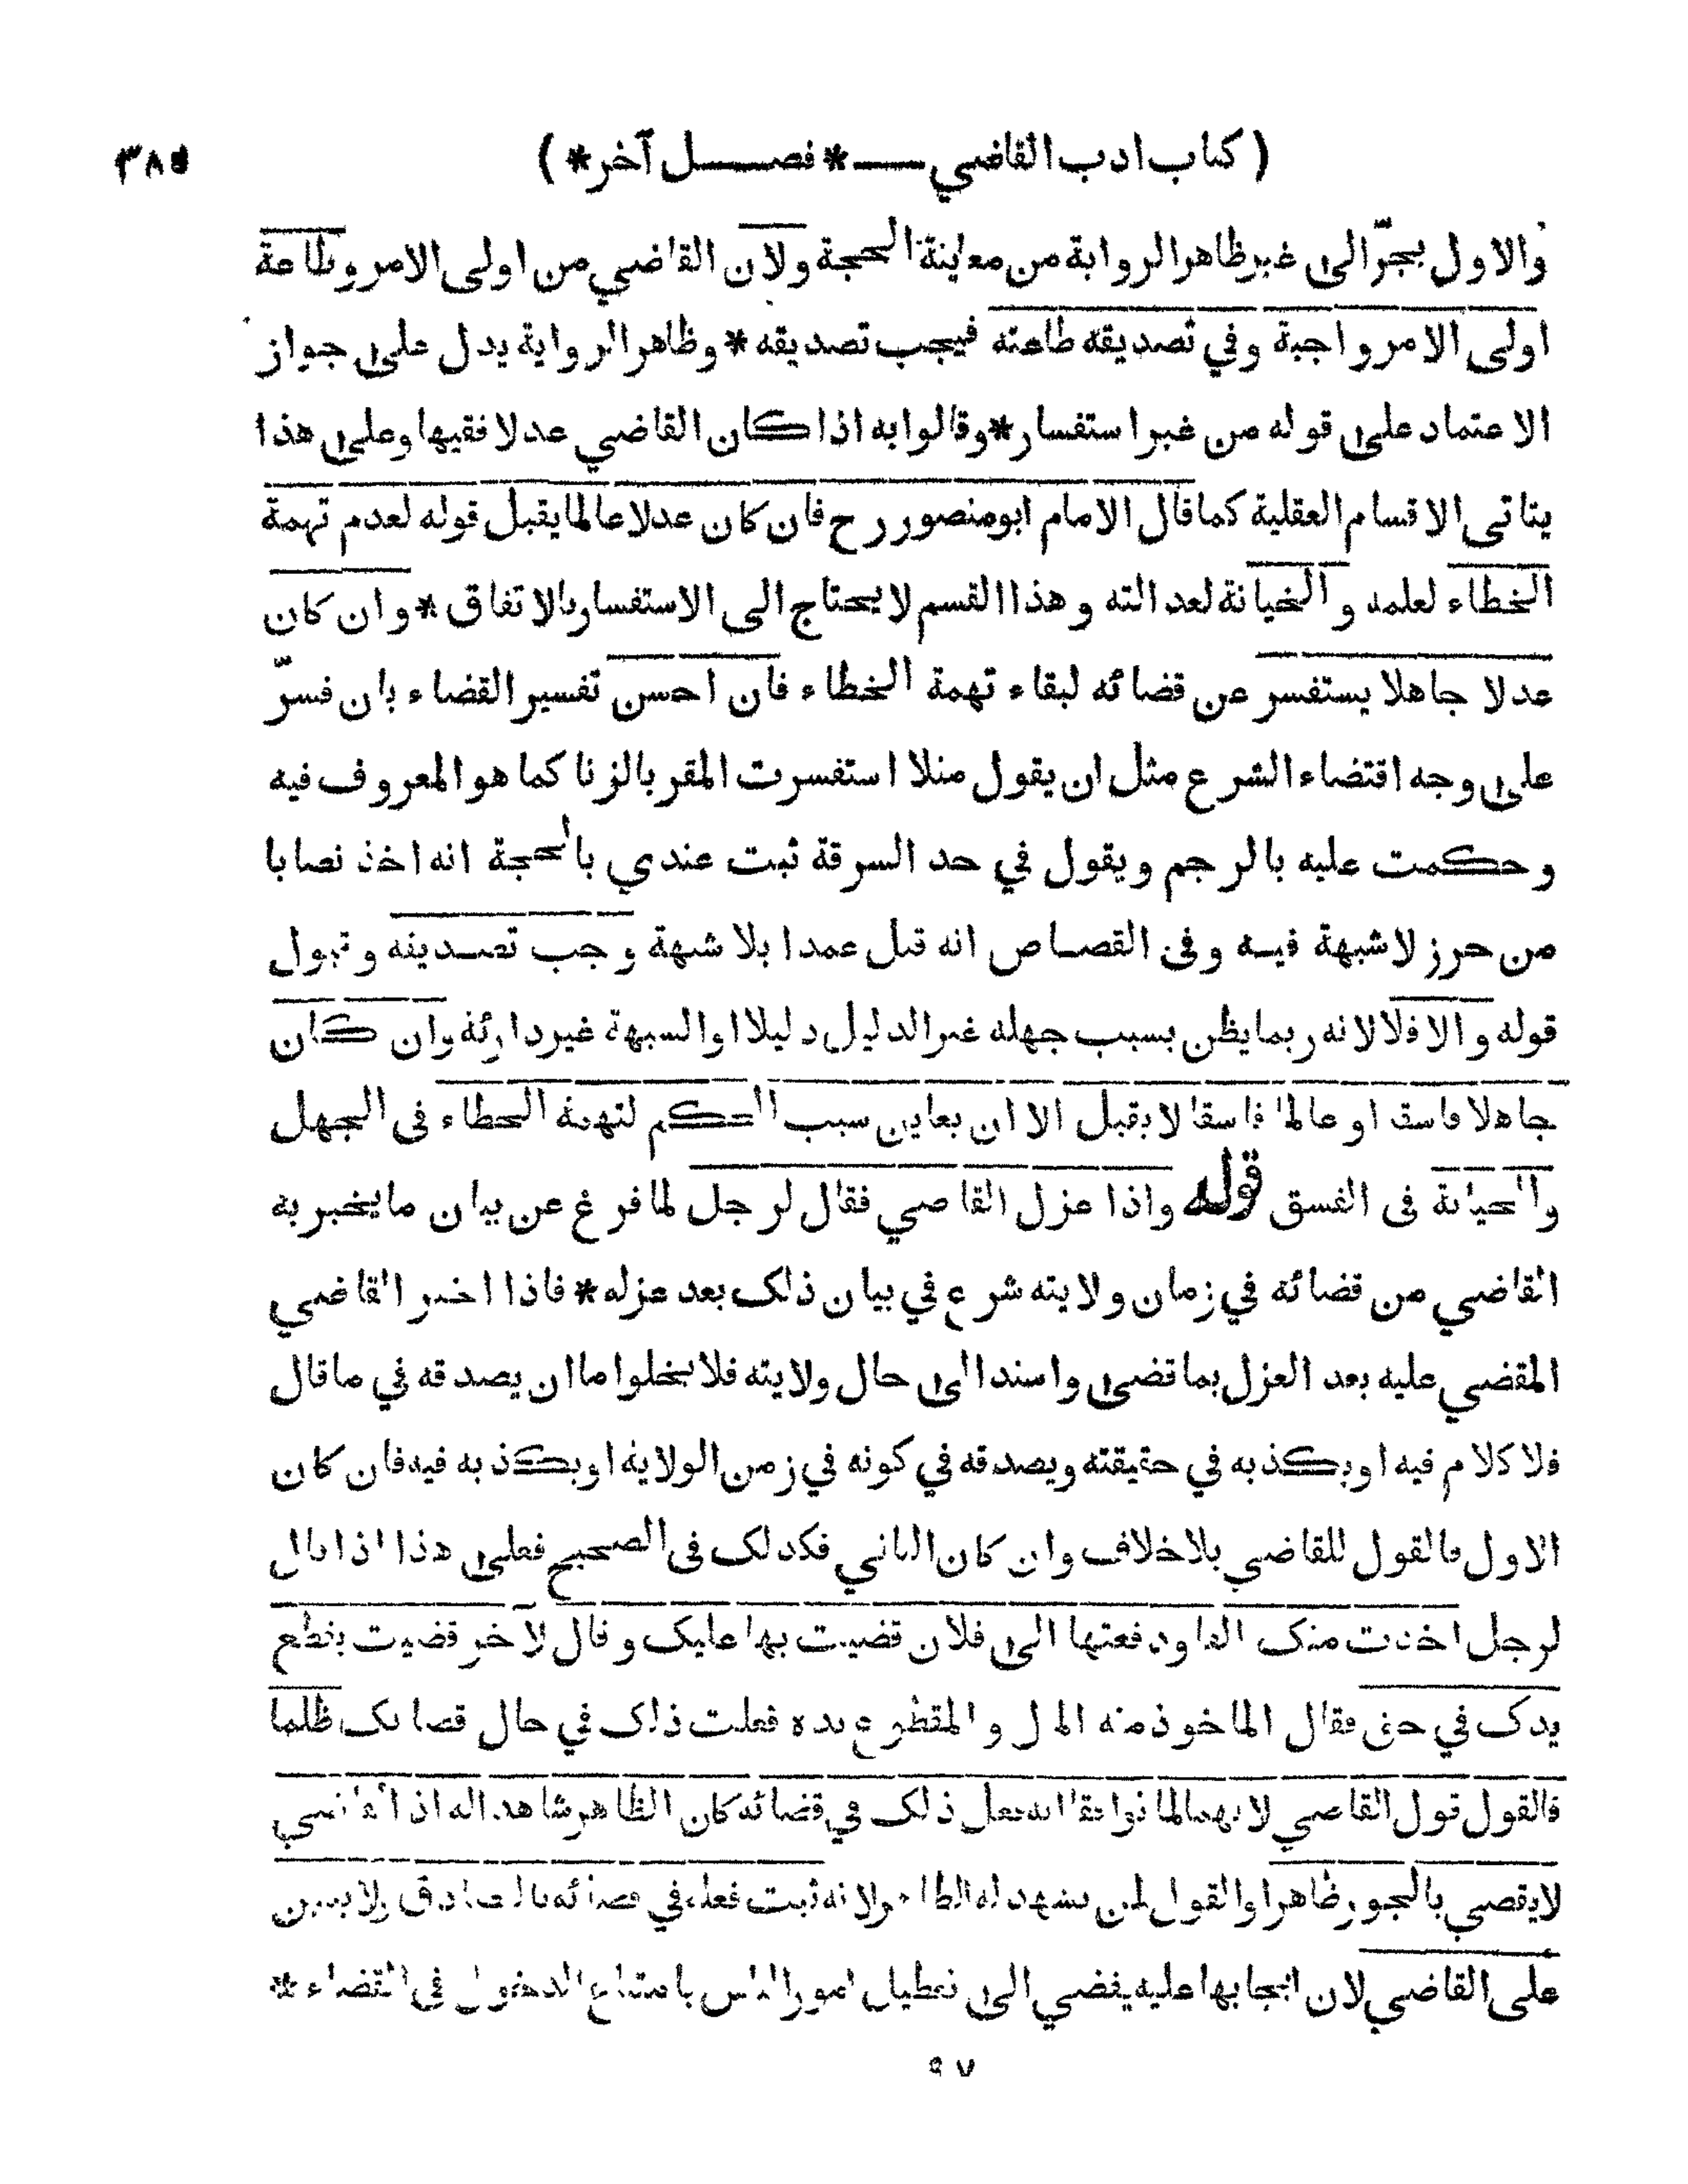 ( كتاب ادب القاضي — * فصل آخر * )
والاول يجرّ الى غير ظاهر الرواية من معاينة الحجة ولان القاضي من اولى الامر وطاعة
اولى الامر واجبة وفي تصديقه طاعته فيجب تصديقه * وظاهر الرواية يدل على جواز
الاعتماد على قوله من غير استفسار * وقالوا به اذا كان القاضي عدلا فقيها وعلى هذا
يتاتى الاقسام العقلية كما قال الامام ابو منصور رح فان كان عدلا عالما يقبل قوله لعدم تهمة
الخطاء لعلمه والخيانة لعدالته وهذا القسم لا يحتاج الى الاستفسار بالاتفاق * وان كان
عدلا جاهلا يستفسر عن قضائه لبقاء تهمة الخطاء فان احسن تفسير القضاء بان فسرّ
على وجه اقتضاء الشرع مثل ان يقول مثلا استفسرت المقر بالزنا كما هو المعروف فيه
وحكمت عليه بالرجم ويقول في حد السرقة ثبت عندي بالحجة انه اخذ نصابا
من حرز لا شبهة فيه وفى القصاص انه قتل عمدا بلا شبهة وجب تصديقه وقبول
قوله والا فلا لانه ربما يظن بسبب جهله غير الدليل دليلا او الشبهة غير دارئة وان كان
جاهلا فاسقا او عالما فاسقا لا يقبل الا ان يعاين سبب الحكم لتهمة الخطاء فى الجهل
والخيانة فى الفسق قوله واذا عزل القاضي فقال لرجل لما فرغ عن بيان ما يخبر به
القاضي من قضائه في زمان ولايته شرع في بيان ذلك بعد عزله * فاذا اخبر القاضي
المقضي عليه بعد العزل بما قضى واسند الى حال ولايته فلا يخلوا ما ان يصدقه في ما قال
فلا كلام فيه او يكذبه في حقيقته ويصدقه في كونه في زمن الولاية او يكذبه فيه فان كان
الاول فالقول للقاضي بلا خلاف وان كان الثاني فكذلك فى الصحيح فعلى هذا اذا قال
لرجل اخذت منك الفا ودفعتها الى فلان قضيت بها عليك وقال لآخر قضيت بقطع
يدك في حق فقال الماخوذ منه المال والمقطوع يده فعلت ذلك في حال قضائك ظلما
فالقول قول القاضي لانهما لما توافقا انه فعل ذلك في قضائه كان الظاهر شاهدا له اذ القاضي
لا يقضي بالجور ظاهرا والقول لمن يشهد له الظاهر ولانه ثبت فعله في قضائه بالتصادق ولا يمين
على القاضي لان ايجابها عليه يفضي الى تعطيل امور الناس بامتناع الدخول فى القضاء *
٩٧